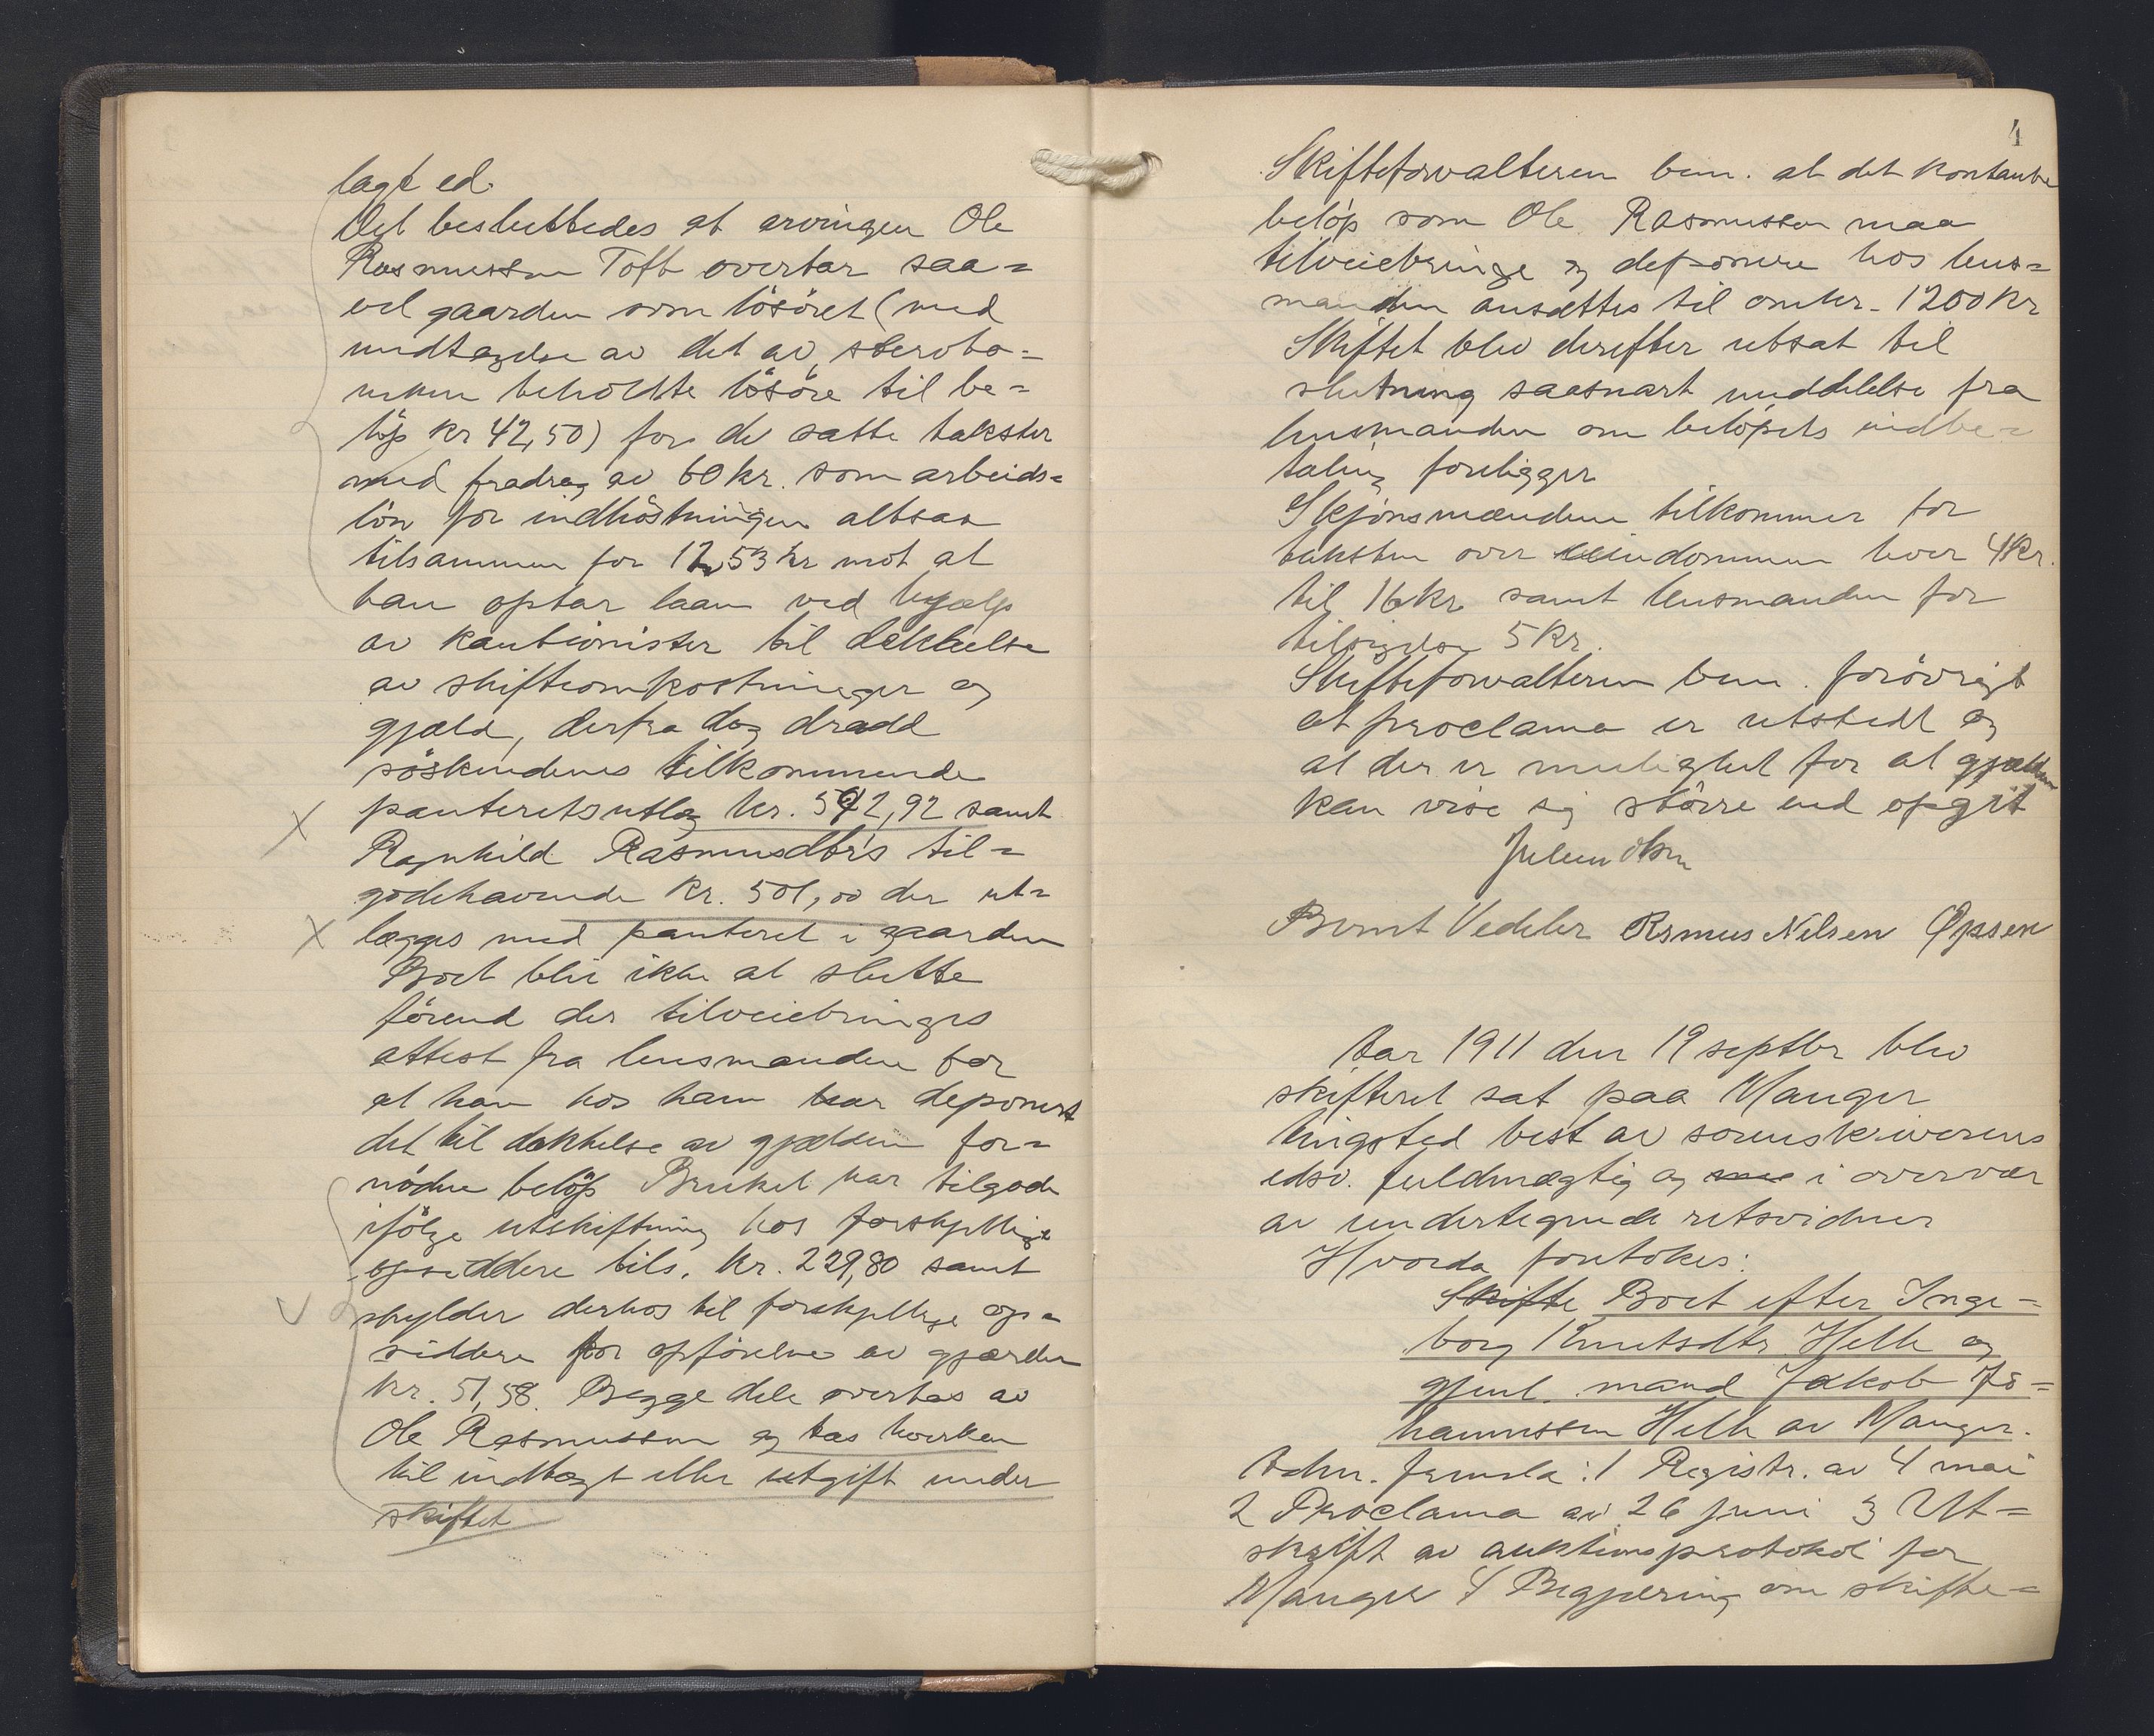 lagt ed.
Det besluttedes at arvingen Ole
Rasmussen Toft overtar saa=
vel gaarden som lösöret (med
undtagelse av det av sterbo=
enken beholdte lösöre til be=
löp kr 42,50) for de satte takster
med fradrag av 60 kr. som arbeids=
lön for indhöstningen altsaa
tilsammen for 1253 kr mot at
han optar laan ved hjælp
av kautionister til dækkelse
av skifteomkostninger og
gjæld, derfra dog
söskendenes tilkommende
panteretsutlæg kr. 542,92 samt
Ragnhild Rasmusdtrs til=
godehavende kr. 501,00 der ut=
lægges med panteret i gaarden
Boet blir ikke at slutte
förend der tilveiebringes
attest fra lensmanden for
at han hos ham har deponert
det til dækkelse av gjælden for=
nödne belöp Bruket har tilgode
ifölge utskiftning hos forskjellige
opsiddere tils. kr. 229,80 samt
skylder derhos til forskjellige op=
siddere for opförelse av gjærder
kr. 51,58. Begge dele overtas av
Ole Rasmussen og tas hverken
til indtægt eller utgift under
skiftet
4
Skifteforvalteren bem. at det kontante
belöp som Ole Rasmussen maa
tilveiebringe og deponere hos lens=
manden ansættes til omkr. 1200 kr
Skiftet blev derefter utsat til
slutning saasnart meddelelse fra
lensmanden om belöpets indbe=
taling foreligger
Skjönsmændene tilkommer for
taksten over eiendommen hver 4 kr.
til 16 kr samt lensmanden for
tilsigelse 5 kr.
Skifteforvalteren bem. forövrigt
at proclama er utstedt og
at der er mulighet for at gjælden
kan vise sig större end opgit
Julius Olsen
Bernt Vedeler Rsmus Nilsen Opsen
Aar 1911 den 19 septbr blev
skifteret sat paa Manger
tingsted best av sorenskriverens
edsv. fuldmægtig og i overvær
av undertegnede retsvidner
Hvorda foretokes:
Skifte Boet efter Inge=
borg Knutsdtr. Helle og
gjenl. mand Jakob Jo=
hannessen Helle av Manger.
Adm. fremla: 1 Registr. av 4 mai
2 Proclama av 26 juni 3 Ut=
skrift av auktionsprotokol for
Manger 4 Begjæring om skifte=